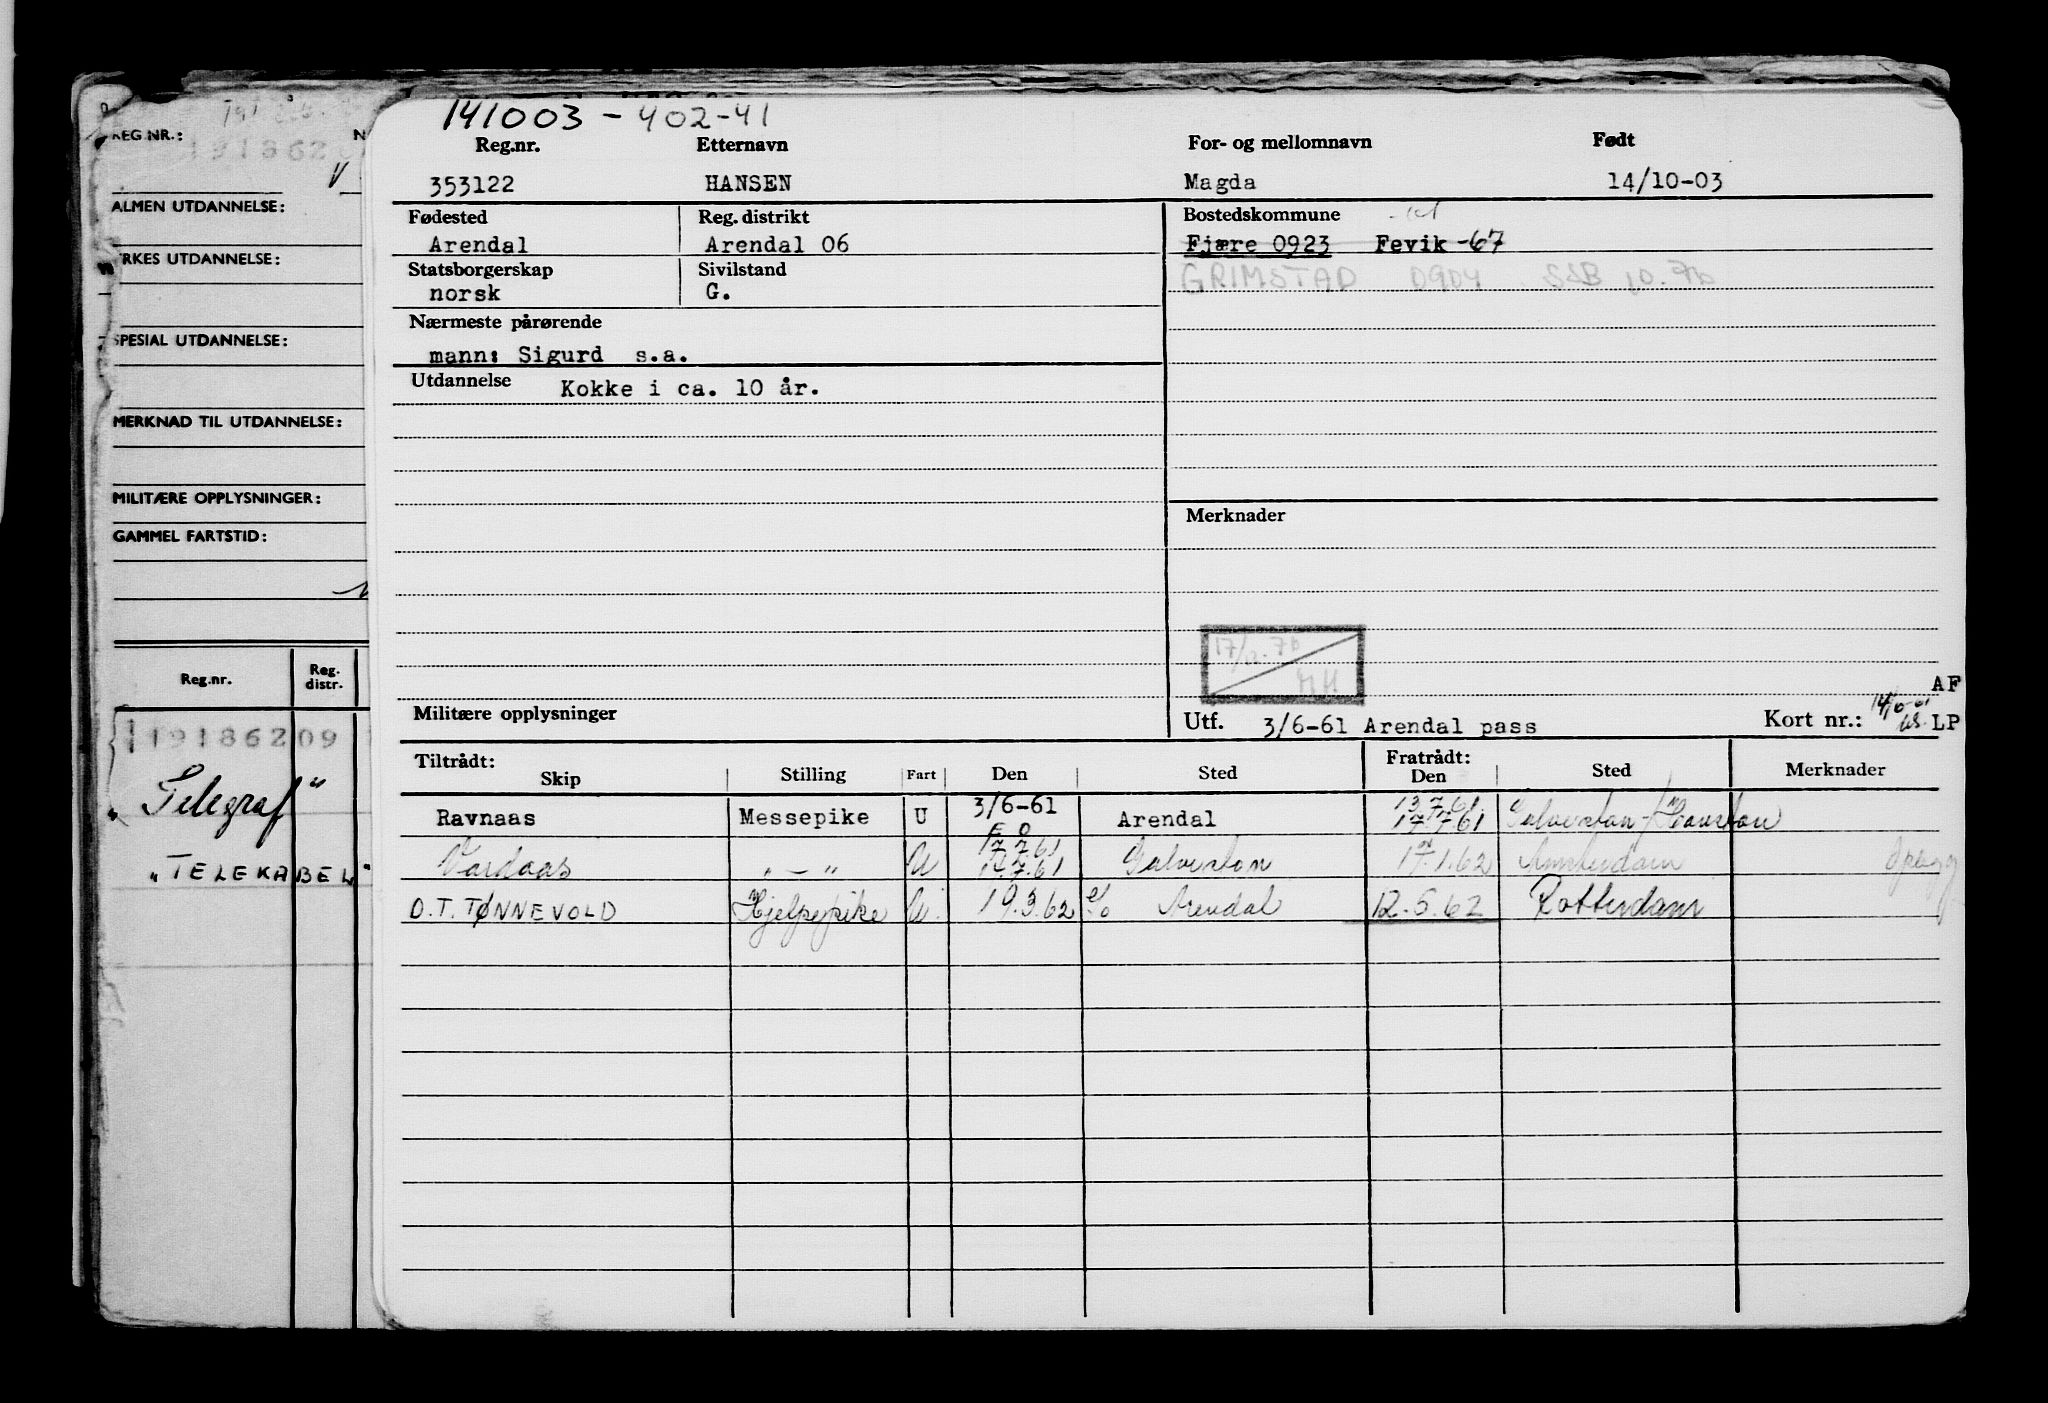 141003 - 402-41
Reg.nr. Etternavn For- og mellomnavn Født
353122 HANSEN Magda 14/10-03
Fødested Reg. distrikt Bostedskommune
Arendal Arendal 06 Fjære 0923 Fevik -67
Statsborgerskap Sivilstand GRIMSTAD 0904 SSB 10.76
norsk G.
Nærmeste pårørende
mann: Sigurd s.a.
Utdannelse Kokke i ca. 10 år.
Merknader
17/12.76
MH
AF
Militære opplysninger Utf. 3/6-61 Arendal pass Kort nr.: LP
Tiltrådt: Fratrådt:
Skip Stilling Fart Den Sted Den Sted Merknader
Ravnaas Messepike U 3/6-61 Arendal 13.7.61 17.7.61 Galveston - Houston
Vardaas " - " U 17.7.61 Galveston 17.1.62 Amsterdam Opplegg
O.T. TØNNEVOLD Hjelpepike U 19.3.62 Arendal 12.5.62 Rotterdam
REG NR.: N
191862
ALMEN UTDANNELSE:
YRKES UTDANNELSE:
SPESIAL UTDANNELSE:
MERKNAD TIL UTDANNELSE:
MILITÆRE OPPLYSNINGER:
GAMMEL FARTSTID:
Reg.nr. Reg. distr.
191862 09
"Telegraf"
"TELEKABEL"